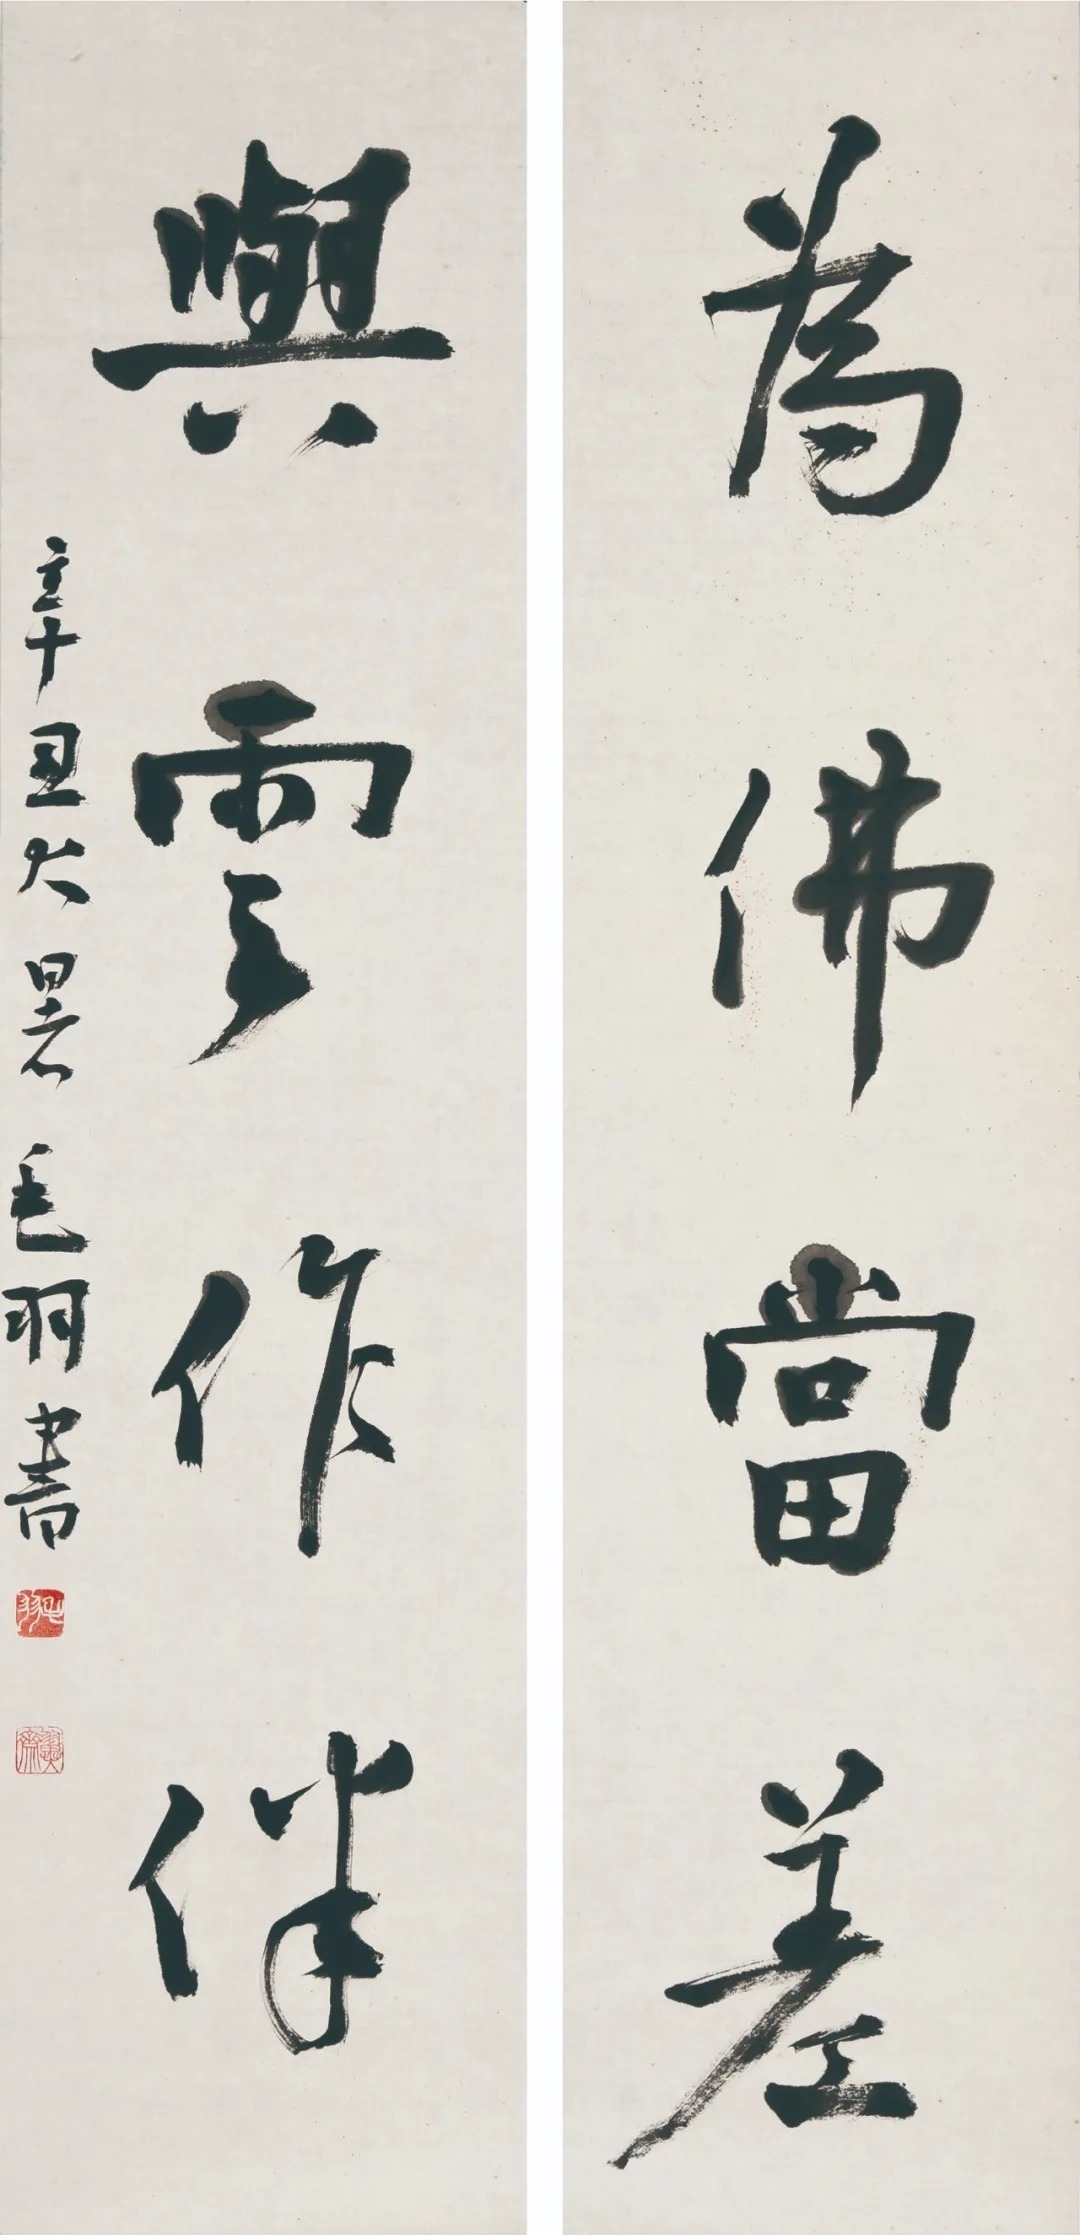 為佛當差
與雲作伴
辛丑大暑毛羽書
毛羽